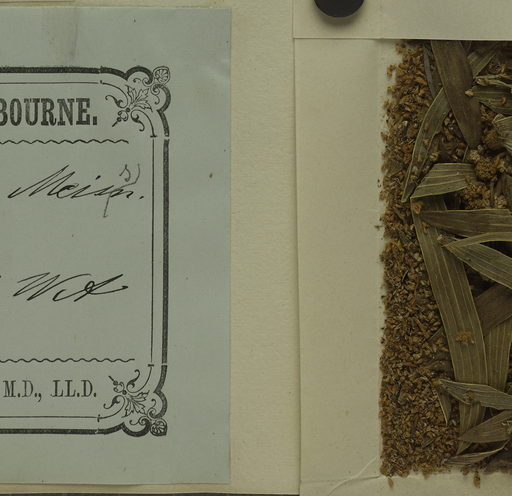 BOURNE.
Meisn.
WA
M.D., LL.D.